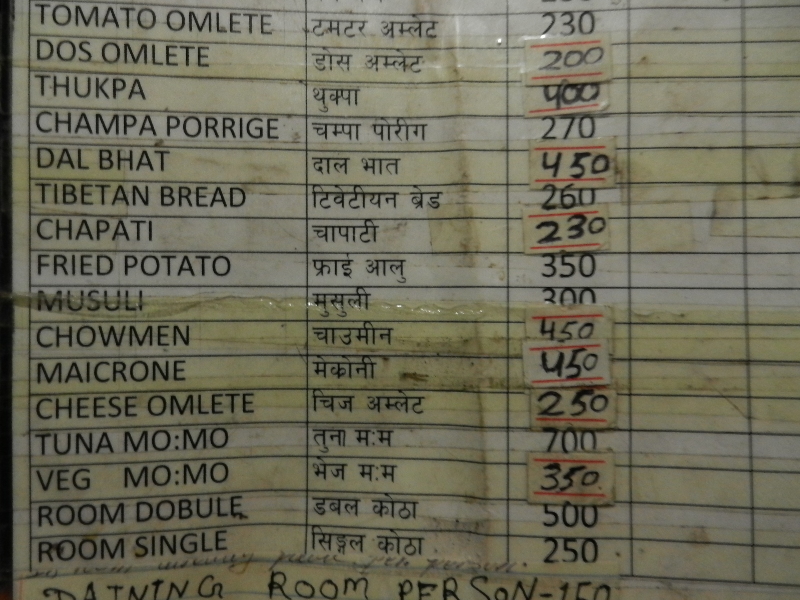 TOMATO OMLETE टमटर अम्लेट 230
DOS OMLETE डोस अम्लेट 200
THUKPA थुक्पा 400
CHAMPA PORRIGE चम्पा पोरीग 270
DAL BHAT दाल भात 450
TIBETAN BREAD टिवेटीयन ब्रेड 260
CHAPATI चापाटी 230
FRIED POTATO फ्राई आलु 350
MUSULI मुसुली 300
CHOWMEN चाउमीन 450
MAICRONE मेक्रोनी 450
CHEESE OMLETE चिज अम्लेट 250
TUNA MO:MO तुना म:म 700
VEG MO:MO भेज म:म 350
ROOM DOBULE डबल कोठा 500
ROOM SINGLE सिङ्गल कोठा 250
DAINING ROOM PERSON-150